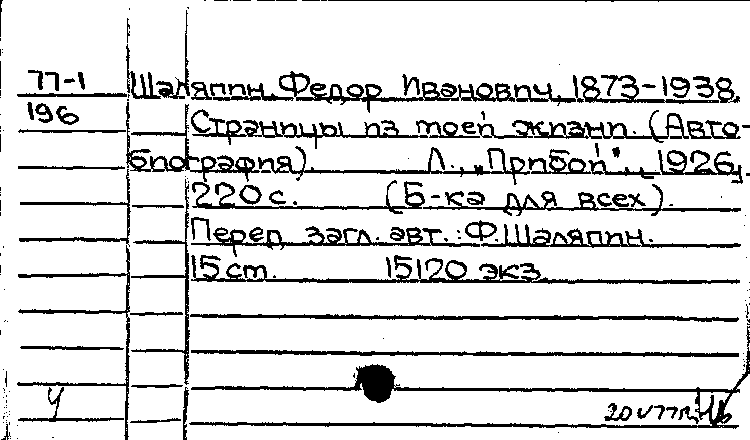 77-1 Шаляпин, Федор Иванович, 1873-1938.
196 Страницы из моей жизни. (Авто-
биография). Л., „Прибой", 1926,
220 с. (Б-ка для всех).
Перед загл. авт.: Ф.Шаляпин.
15 cm. 15120 экз.